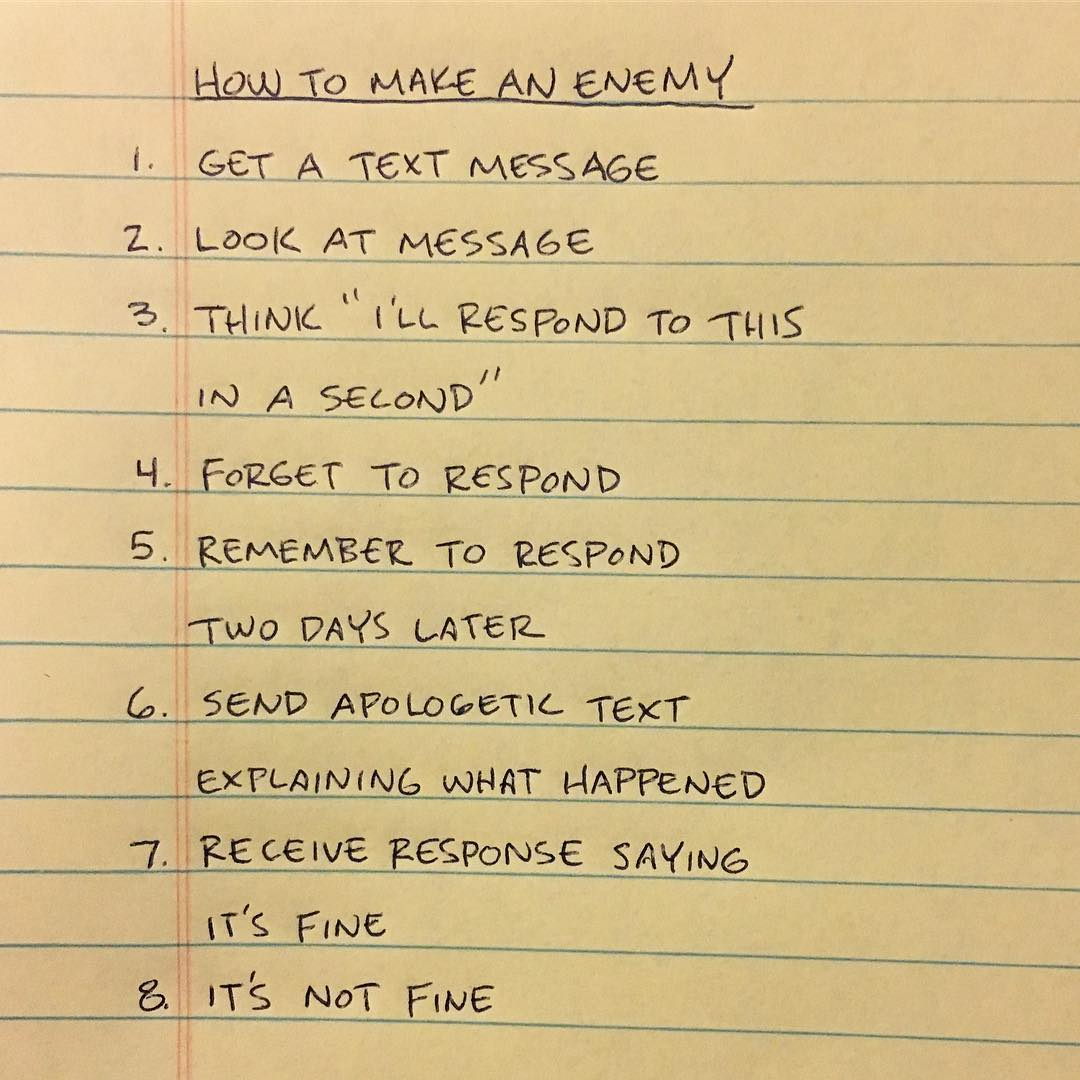 HOW TO MAKE AN ENEMY
1. GET A TEXT MESSAGE
2. LOOK AT MESSAGE
3. THINK "I'LL RESPOND TO THIS
IN A SECOND"
4. FORGET TO RESPOND
5. REMEMBER TO RESPOND
TWO DAYS LATER
6. SEND APOLOGETIC TEXT
EXPLAINING WHAT HAPPENED
7. RECEIVE RESPONSE SAYING
IT'S FINE
8. IT'S NOT FINE